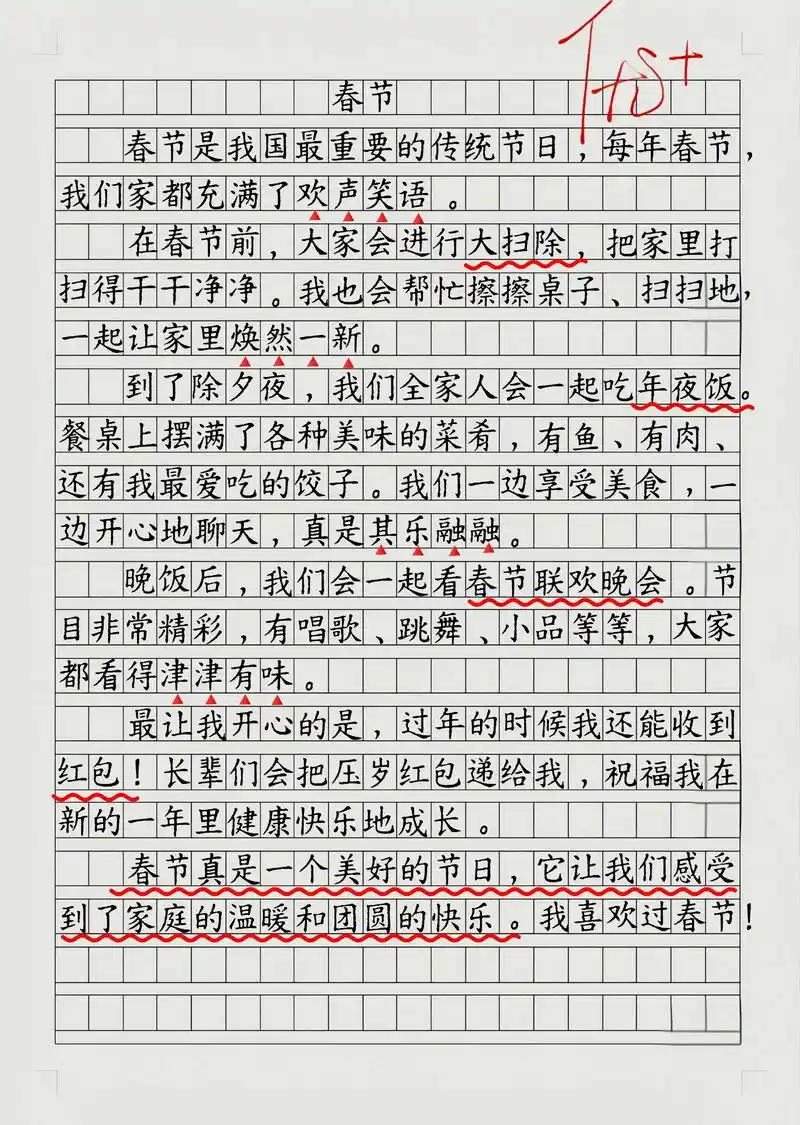 优+
春节
春节是我国最重要的传统节日，每年春节，
我们家都充满了欢声笑语。
在春节前，大家会进行大扫除，把家里打
扫得干干净净。我也会帮忙擦擦桌子、扫扫地，
一起让家里焕然一新。
到了除夕夜，我们全家人会一起吃年夜饭。
餐桌上摆满了各种美味的菜肴，有鱼、有肉、
还有我最爱吃的饺子。我们一边享受美食，一
边开心地聊天，真是其乐融融。
晚饭后，我们会一起看春节联欢晚会。节
目非常精彩，有唱歌、跳舞、小品等等，大家
都看得津津有味。
最让我开心的是，过年的时候我还能收到
红包！长辈们会把压岁红包递给我，祝福我在
新的一年里健康快乐地成长。
春节真是一个美好的节日，它让我们感受
到了家庭的温暖和团圆的快乐。我喜欢过春节！